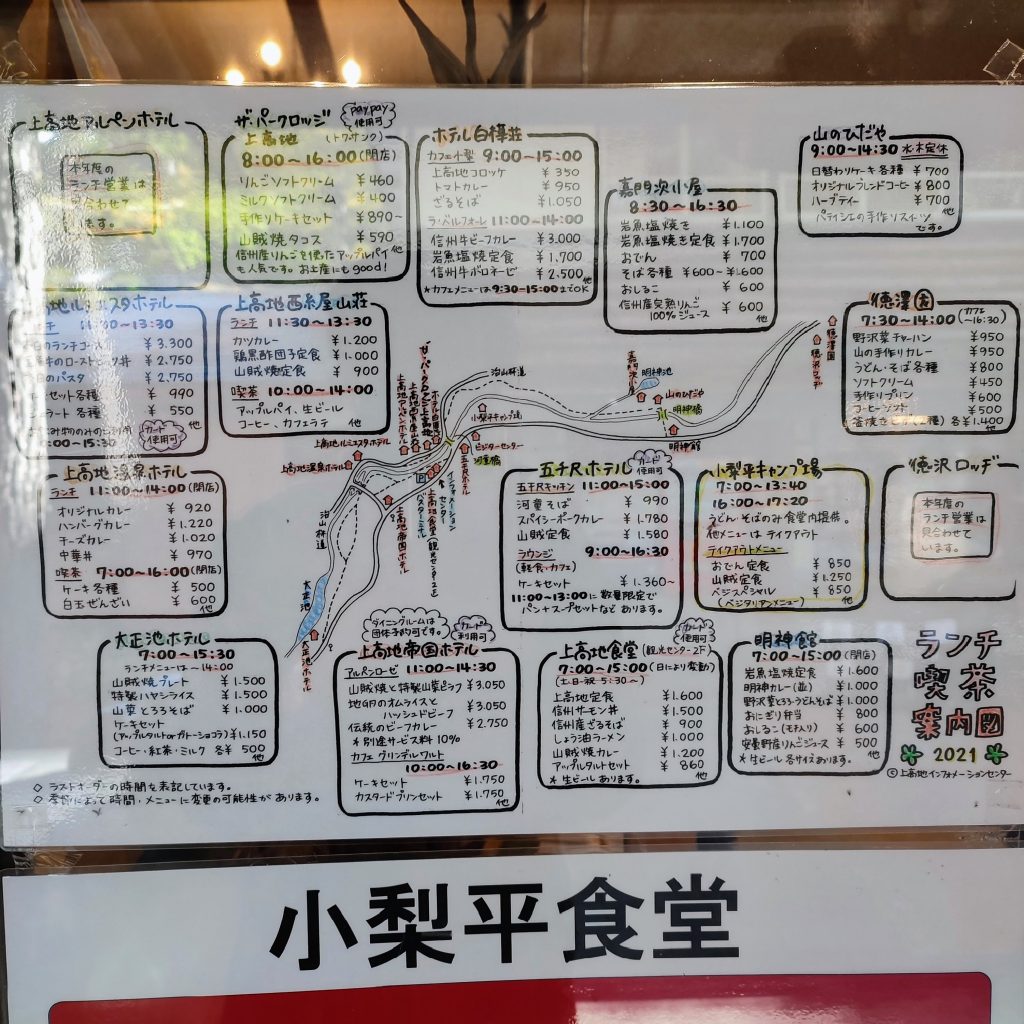 上高地アルペンホテル
本年度の
ランチ営業は
見合わせて
います。
ザ・パークロッジ
上高地
(トワ・サンク)
paypay
使用可
8:00〜16:00(閉店)
りんごソフトクリーム ¥460
ミルクソフトクリーム ¥400
手作りケーキセット ¥890〜
山賊焼タコス ¥590
他
信州産りんごを使ったアップルパイ
も人気です。お土産にもgood!
ホテル白樺荘
カフェ小梨 9:00〜15:00
上高地コロッケ ¥350
トマトカレー ¥950
ざるそば ¥1.050
ラ・ベルフォーレ 11:00〜14:00
信州牛ビーフカレー ¥3.000
岩魚塩焼定食 ¥1.700
信州牛ボロネーゼ ¥2.500
他
*カフェメニューは9:30-15:00までOK
嘉門次小屋
8:30〜16:30
岩魚塩焼き ¥1.100
岩魚塩焼き定食 ¥1.700
おでん ¥700
そば各種 ¥600〜¥1.600
おしるこ ¥600
信州産完熟りんご
100%ジュース ¥600
他
山のひだや
9:00〜14:30 水・木定休
日替わりケーキ各種 ¥700
オリジナルブレンドコーヒー ¥800
ハーブティー ¥700
他
パティシエの手作りスイーツ
です。
11:30〜13:30
¥3.300
¥2.750
¥2.750
セット各種 ¥990
ジェラート各種 ¥550
カード
使用可
〜15:30
他
上高地西糸屋山荘
ランチ 11:30〜13:30
カツカレー ¥1.200
鶏黒酢団子定食 ¥1.000
山賊焼定食 ¥900
喫茶 10:00〜14:00
アップルパイ、生ビール
コーヒー、カフェラテ 他
徳澤園
7:30〜14:00(カフェ〜16:30)
野沢菜チャーハン ¥950
山の手作りカレー ¥950
うどん・そば各種 ¥800
ソフトクリーム ¥450
手作りプリン ¥600
コーヒーソフト ¥500
各¥1.400
他
治山林道
小梨平キャンプ場
嘉門次小屋
明神池
山のひだや
明神橋
明神館
徳澤園
徳沢ロッヂ
ビジターセンター
河童橋
五千尺ホテル
インフォメーションセンター
バスターミナル
上高地食堂(観光センター2F)
上高地帝国ホテル
上高地ルミエスタホテル
上高地温泉ホテル
治山林道
大正池
大正池ホテル
上高地温泉ホテル
ランチ 11:00〜14:00(閉店)
オリジナルカレー ¥920
ハンバーグカレー ¥1.220
チーズカレー ¥1.020
中華丼 ¥970
喫茶 7:00〜16:00(閉店)
ケーキ各種 ¥500
白玉ぜんざい ¥600
他
五千尺ホテル
カード
使用可
五千尺キッチン 11:00〜15:00
河童そば ¥990
スパイシーポークカレー ¥1.780
山賊定食 ¥1.580
ラウンジ 9:00〜16:30
(軽食・カフェ)
ケーキセット ¥1.360〜
11:00〜13:00に数量限定で
パン+スープセットなどあります。
小梨平キャンプ場
7:00〜13:40
16:00〜17:20
うどん・そばのみ食堂内提供。
他メニューはテイクアウト
テイクアウトメニュー
おでん定食 ¥850
山賊定食 ¥1.250
ベジスペシャル ¥850
(ベジタリアンメニュー) 他
徳沢ロッヂ
本年度の
ランチ営業は
見合わせて
います。
大正池ホテル
7:00〜15:30
ランチメニューは〜14:00
山賊焼プレート ¥1.500
特製ハヤシライス ¥1.500
山菜とろろそば ¥1.000
ケーキセット
(アップルタルトorガトーショコラ)¥1.150
コーヒー・紅茶・ミルク 各¥500
他
ダイニングルームは
団体予約可です。
カード
利用可
上高地帝国ホテル
アルペンローゼ 11:00〜14:30
山賊焼と特製山菜ピラフ ¥3.050
地卵のオムライスと
ハッシュドビーフ ¥3.050
伝統のビーフカレー ¥2.750
*別途サービス料10%
カフェ グリンデルワルト
10:00〜16:30
ケーキセット ¥1.750
カスタードプリンセット ¥1.750
他
カード
使用可
上高地食堂(観光センター2F)
7:00〜15:00(日により変動)
(土・日・祝・5:30〜)
上高地定食 ¥1.600
信州サーモン丼 ¥1.500
信州産ざるそば ¥900
しょう油ラーメン ¥1.000
山賊焼カレー ¥1.200
アップルタルトセット ¥860
*生ビールあります。 他
明神館
7:00〜15:00(閉店)
岩魚塩焼定食 ¥1.600
明神カレー(並) ¥1.000
野沢菜とろろうどん・そば ¥1.000
おにぎり弁当 ¥800
おしるこ(モチ入り) ¥600
安曇野産りんごジュース ¥500
*生ビール各サイズあります。 他
ランチ
喫茶
案内図
2021
©上高地インフォメーションセンター
◇ ラストオーダーの時間を表記しています。
◇ 季節によって時間・メニューに変更の可能性があります。
小梨平食堂